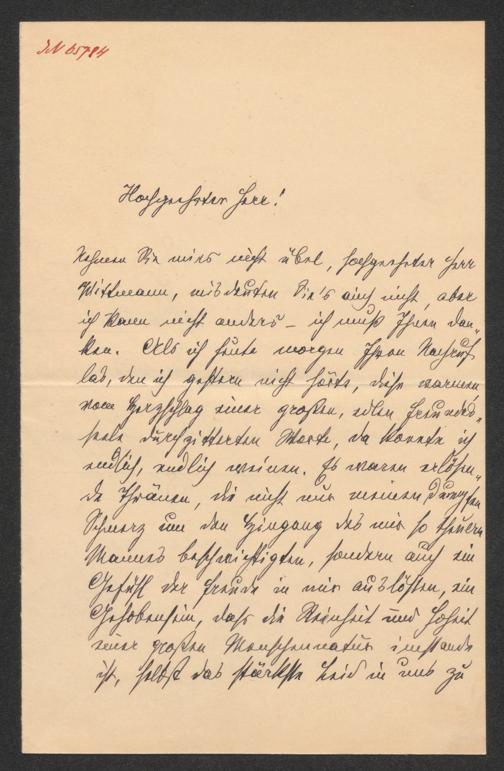 IN 65784
Hochgeehrter Herr!
Nehmen Sie mirs nicht übel, hochgeehrter Herr
Wittmann, misdeuten Sie's auch nicht, aber
ich kann nicht anders – ich muß Ihnen dan-
ken. Als ich heute morgen Ihren Nachruf
las, den ich gestern nicht hörte, diese warmen,
vom Herzschlag einer großen, edlen Freundes-
seele durchzitterten Worte, da konnte ich
endlich, endlich weinen. Es waren erlösen-
de Thränen, die nicht nur meinen dumpfen
Schmerz um den Hingang des mir so theuern
Mannes beschwichtigten, sondern auch ein
Gefühl der Freude in mir auslösten, ein
Gehobensein, daß die Reinheit und Hoheit
einer großen Menschennatur imstande
ist, selbst das stärkste Leid in uns zu